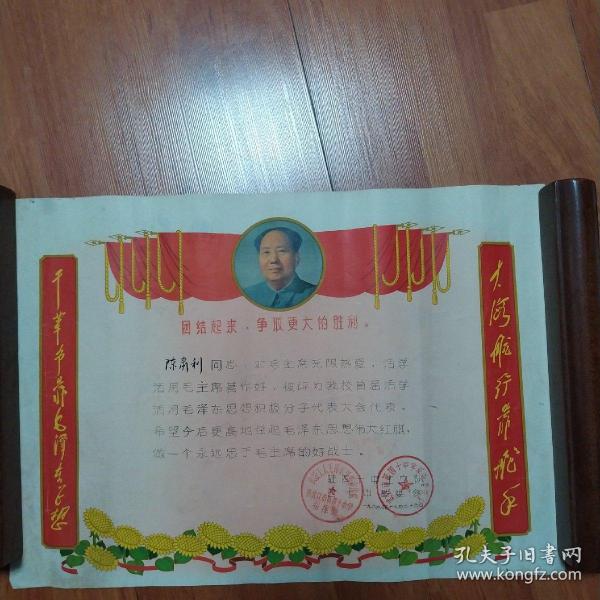 干革命靠毛泽东思想
大海航行靠舵手
团结起来,争取更大的胜利。
同志,对毛主席无限热爱,活学
活用毛主席著作好,被评为我校首届活学
活用毛泽东思想积极分子代表大会代表。
希望今后更高地举起毛泽东思想伟大红旗,
做一个永远忠于毛主席的好战士。
孔夫子旧书网
www.kongfz.com